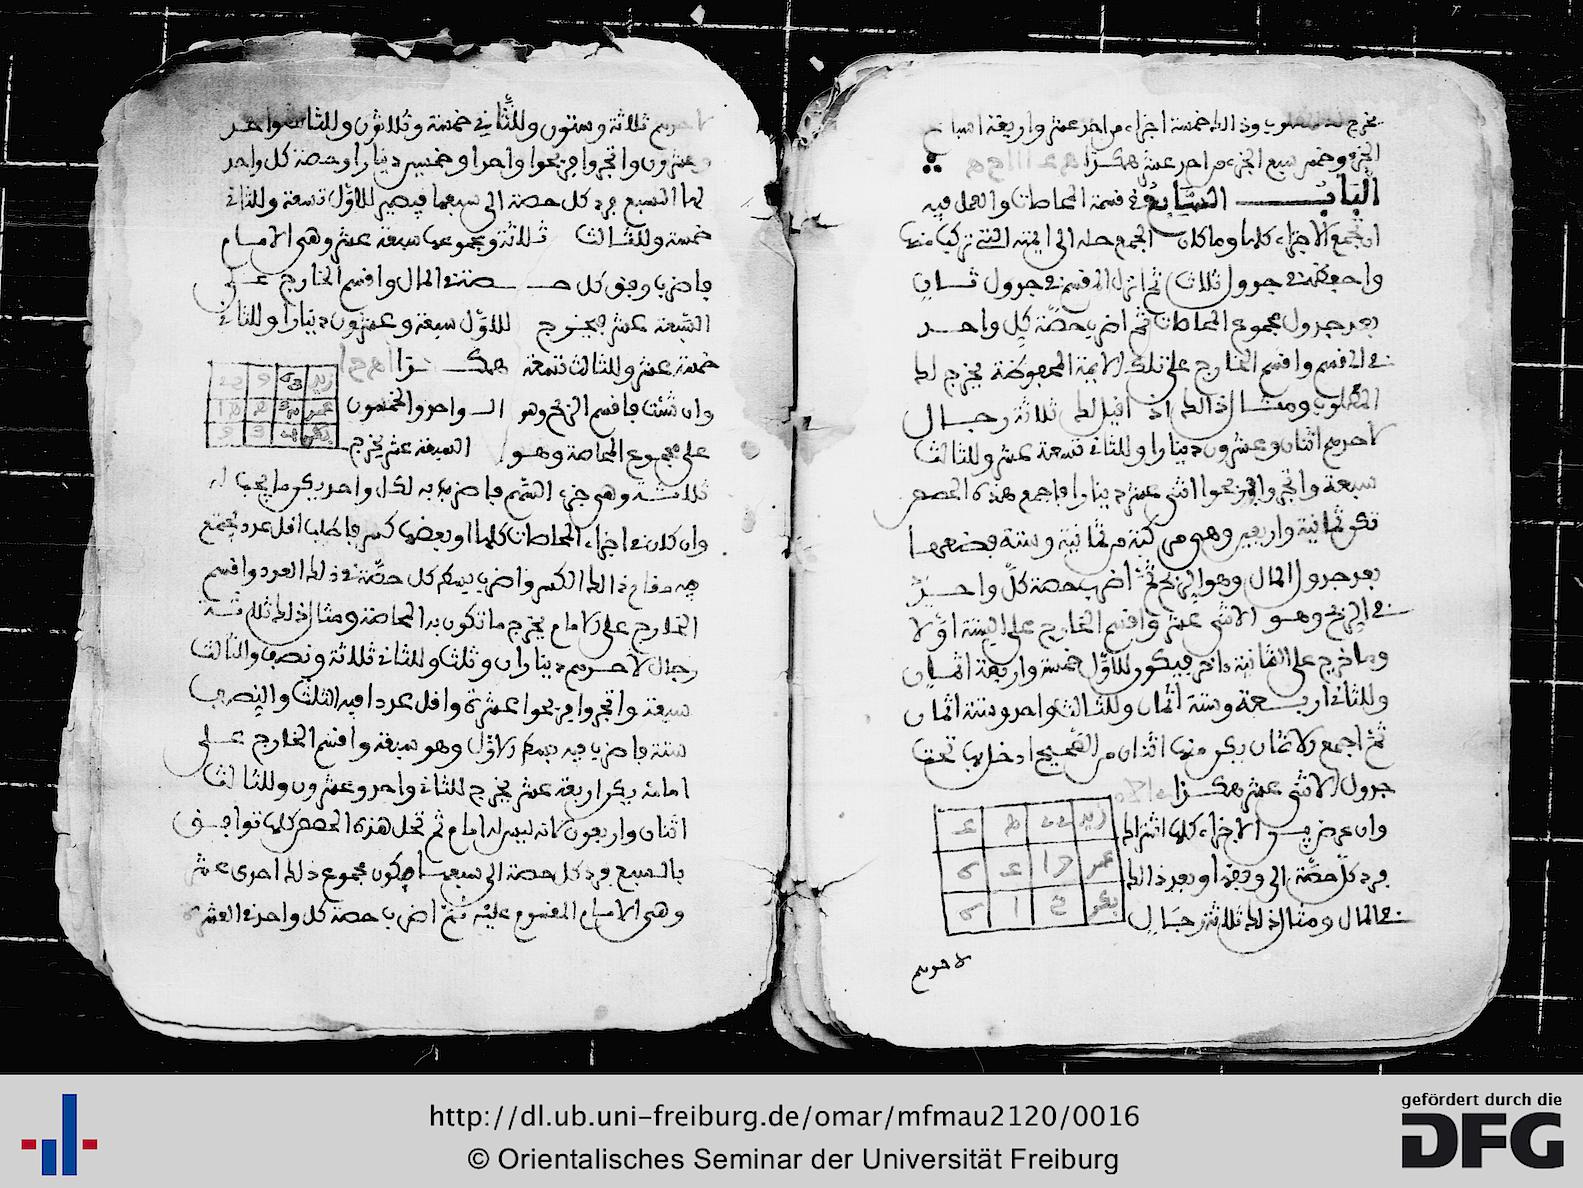 يخرج لك المطلوب وذالك خمسة اجزاء من احد عشر واربعة اسباع
الجزء وخمس سبع الجزء من احد عشر هكذا
الباب السابع في قسمة المحاصات والعمل فيه
ان تجمع الاجزاء كلها وما كان الجمع حله الى ايمته التي تركب منها
واحفظه في جدول ثلاث ثم انزل المقسم في جدول ثان
بعد جدول مجموع المحاصات ثم اضرب حصة كل واحد
في المقسم واقسم الخارج على تلك الايمة المحفوظة يخرج لك
المطلوب ومثال ذالك اذ اقيل لك ثلاثة رجال
لاحدهم اثنان وعشرون دينارا وللثاني تسعة عشر وللثالث
سبعة واتجروا فربحوا اثنى عشر دينارا فاجمع هذه الحصص
تكن ثمانية واربعين وهي مركبة من ثمانية وستة فضعهما
بعد جدول المال وهو الربح ثم اضرب حصة كل واحد
في الربح وهو الاثنى عشر واقسم الخارج على الستة اولا
وما خرج على الثمانية داخر فيكون للاول خمسة واربعة اثمان
وللثاني اربعة وستة اثمان وللثالث واحد وستة اثمان
ثم اجمع الاثمان يكن منها اثنان من الصحيح ادخل بها تحت
جدول الاثنى عشر هكذا
وان عرض بين الاجزاء كلها اشتراك
فرد كل حصة الى وفقها وبعد ذالك
في المال ومثال ذلك ثلاثة رجال
زيد 22
عمر 19
بكر
لاحدهم
لاحدهم ثلاثة وستون وللثاني خمسة وثلاثون وللثالث واحد
وعشرون واتجروا فربحوا واحدا وخمسين دينارا وحصة كل واحد
لها السبع فرد كل حصة الى سبعها فيصير للاول تسعة وللثاني
خمسة وللثالث ثلاثة ومجموعها سبعة عشر وهي الامام
فاضرب وفق كل حصة في المال واقسم الخارج على
السبعة عشر فيخرج للاول سبعة وعشرون دينارا وللثاني
خمسة عشر وللثالث تسعة هكذا
وان شئت فاقسم الربح وهو الواحد والخمسون
على مجموع المحاصة وهو السبعة عشر يخرج
زيد 63 9
عمر
بكر
ثلاثة وهي جزء السهم فاضربه لكل واحد يكن ما يجب له
وان كان في اجزاء المحاصات كلها او بعضها كسر فاطلب اقل عدد يجتمع
فيه مقام ذالك الكسر واضرب بسط كل حصة في ذلك العدد واقسم
الخارج على الامام يخرج ما تكون به المحاصة ومثال ذلك ثلاثة
رجال لاحدهم ديناران وثلث وللثاني ثلاثة ونصف وللثالث
سبعة واتجروا فربحوا عشرة واقل عدد فيه الثلث والنصف
ستة فاضرب فيه بسط الاول وهو سبعة واقسم الخارج على
امامه يكن اربعة عشر يخرج للثاني واحد وعشرون وللثالث
اثنان واربعون لانه ليس له امام ثم تحل هذه الحصص كلها توافق
بالسبع فرد كل حصة الى سبعها يكون مجموع ذلك احدى عشر
وهي الامام المقسوم عليه ثم اضرب حصة كل واحد في العشرة
http://dl.ub.uni-freiburg.de/omar/mfmau2120/0016
© Orientalisches Seminar der Universität Freiburg
gefördert durch die
DFG